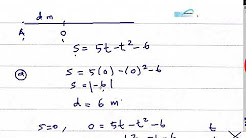 d m
A O
S = 5t - t² - 6
S = 5(0) - (0)² - 6
S = |-6|
d = 6 m
S=0, 0 = 5t - t² - 6